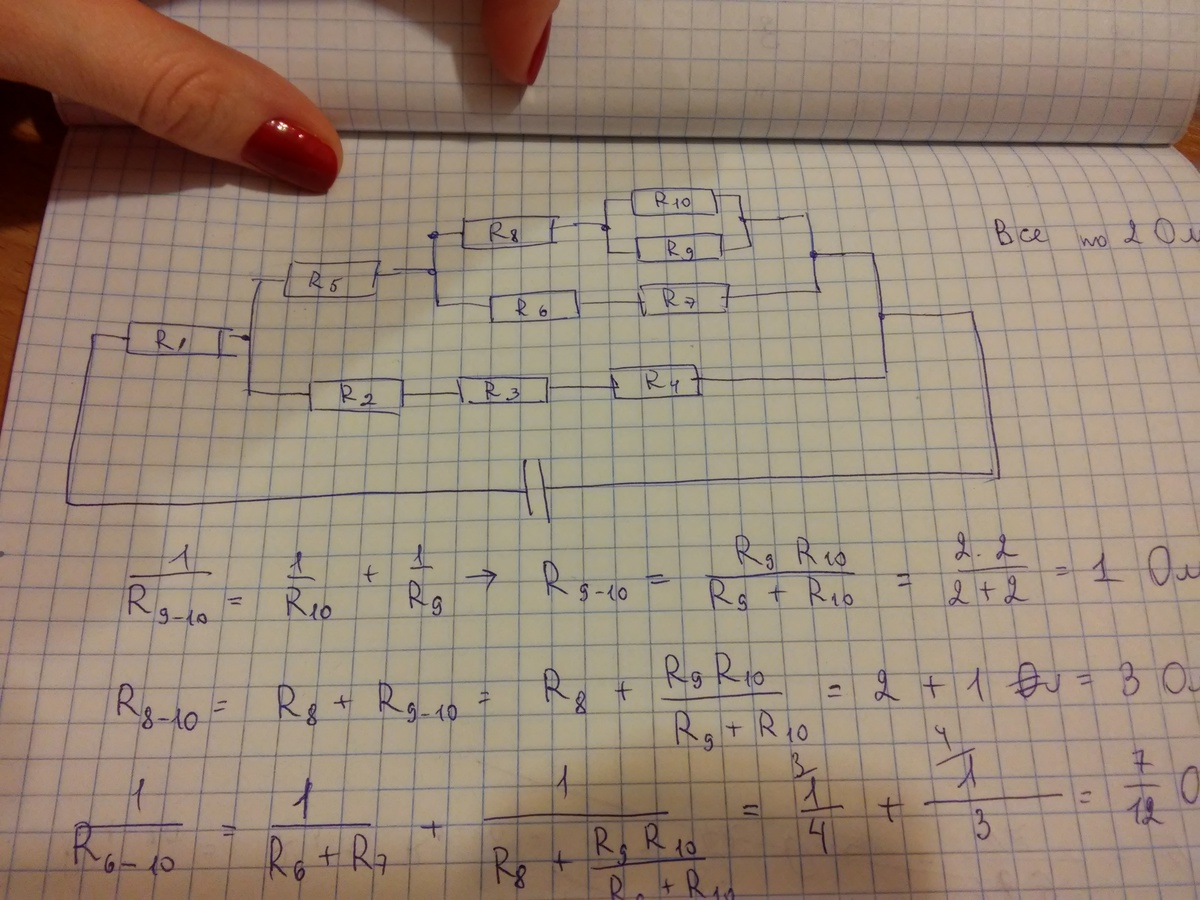 R10
R8
R9
Все по 2 Ом
R5
R6
R7
R1
R2
R3
R4
1/R9-10 = 1/R10 + 1/R9 → R9-10 = R9 R10 / R9 + R10 = 2·2 / 2+2 = 1 Ом
R8-10 = R8 + R9-10 = R8 + R9 R10 / R9 + R10 = 2 + 1 = 3 Ом
1/R6-10 = 1 / R6 + R7 + 1 / R8 + R9 R10 / R9 + R10 = 3 1/4 + 4 1/3 = 7/12 О